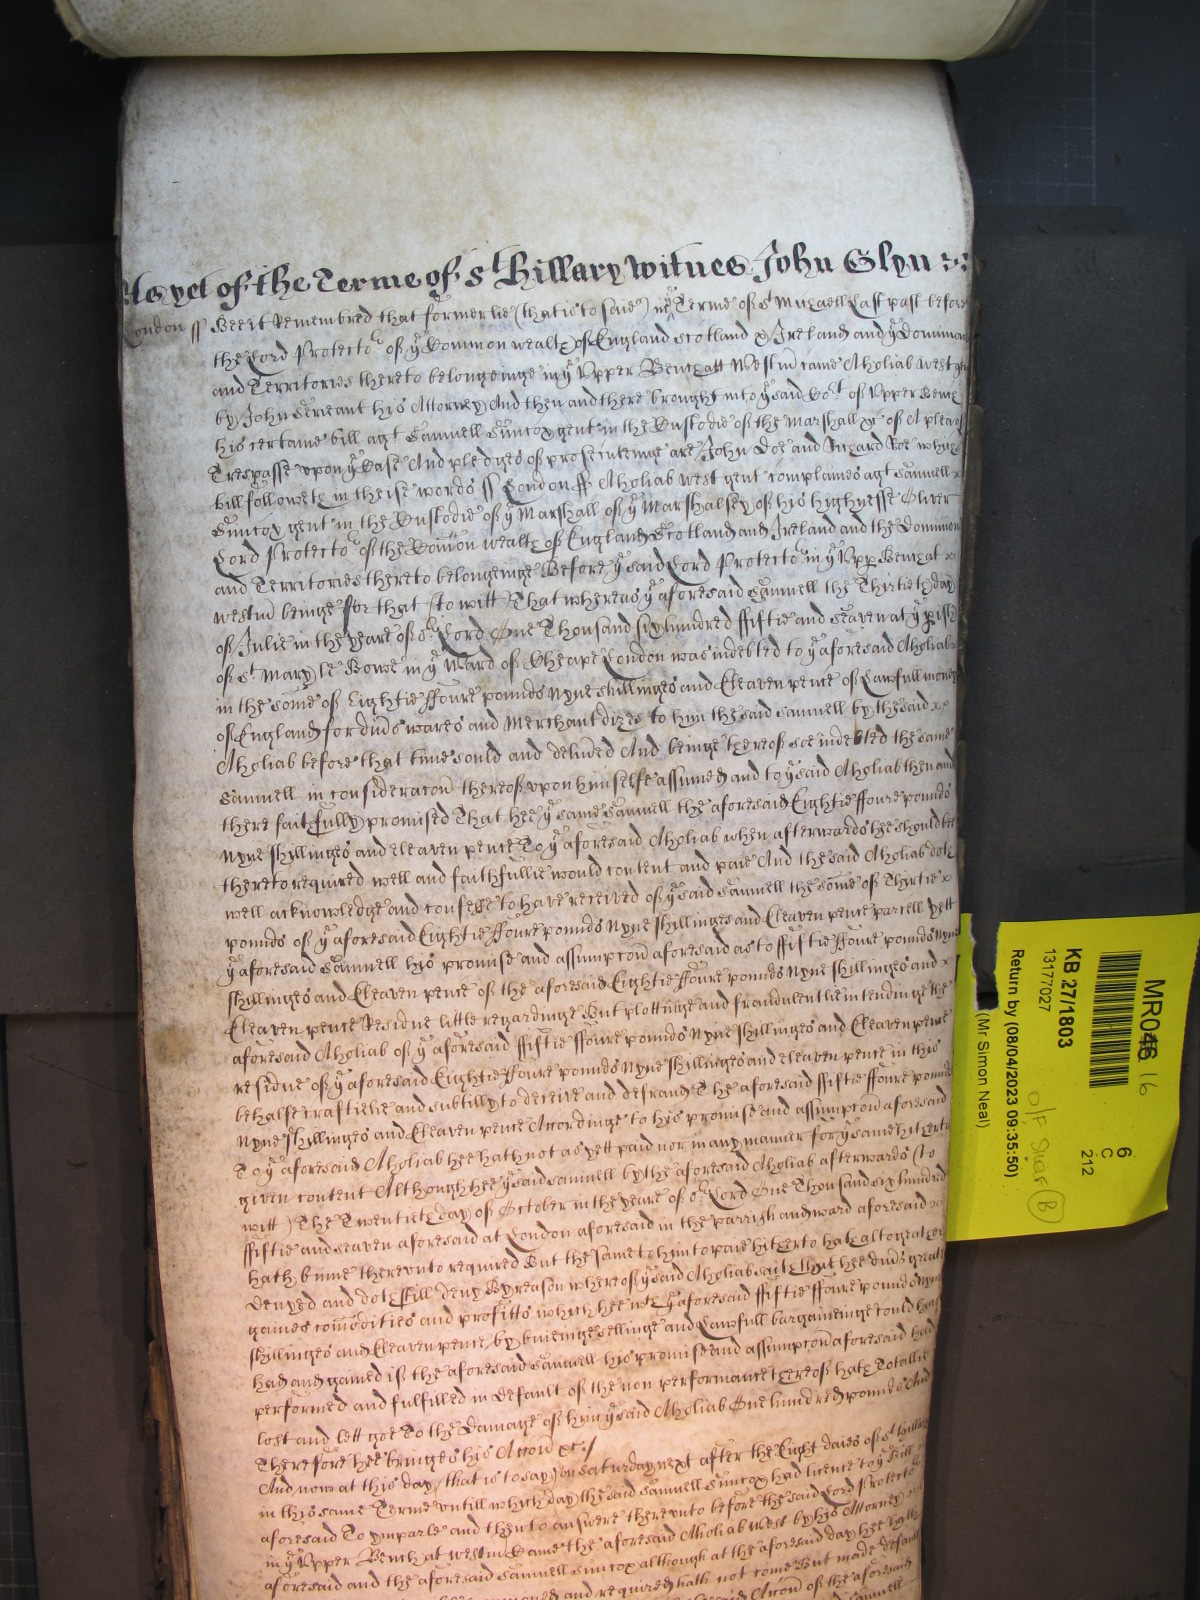 As yet of the Terme of St Hillary witnes John Glyn
London ss Bee it Remembred that formerlie (that is to saie) in ye Terme of St Michaell Last past before
the Lord Protector of ye Common wealth of England Scotland & Ireland and ye Dominions
and Territories thereto belongeinge in ye Upper Bench att Westm came Aholiab West gent
by John Serieant his Attorney And then and there brought into ye said Cort of Upper Bench
his certaine bill agt Samuell Simcox gent in the Custodie of the Marshall &c of A plea of
Trespasse vpon ye Case And pledges of prosecuteinge are John Doe and Richard Roe which
bill followeth in theise words ss London ss Aholiab West gent complaines agt Samuell
Simcox gent in the Custodie of ye Marshall of ye Marshalsey of his highnesse Oliver
Lord Protector of the Comon wealth of England Scotland and Ireland and the Dominions
and Territories thereto belongeinge Before ye said Lord Protector in ye Vpp Bench at
westm beinge for that (to witt) That whereas ye aforesaid Samuell the Thirtieth day
of Julie in the yeare of or Lord One Thousand six hundred fiftie and seaven at ye pish
of St Mary le Bowe in ye Ward of Cheape London was indebted to ye aforesaid Aholiab
in the some of Eightie ffoure pounds Nyne shillinges and Eleaven pence of Lawfull money
of England for divs wares and Merchantdizes to him the said Samuell by the said
Aholiab before that time sould and delived And beinge thereof soe indebted the same
Samuell in consideracon thereof vpon himselfe assumed and to ye said Aholiab then and
there faithfully promised That hee ye same Samuell the aforesaid Eightie ffoure pounds
Nyne shillinges and eleaven pence To ye aforesaid Aholiab when afterwards hee should bee
thereto required well and faithfullie would content and paie And the said Aholiab doth
well acknowledge and confesse to have received of ye said Samuell the some of Thirtie
pounds of ye aforesaid Eightie ffoure pounds Nyne shillinges and Eleaven pence parcell yett
ye aforesaid Samuell his promise and assumpcon aforesaid as to ffiftie ffoure pounds Nyne
shillinges and Eleaven pence of the aforesaid Eightie ffoure pounds Nyne shillinges and
Eleaven pence Residue little regardinge But plottinge and fraudulentlie intendinge the
aforesaid Aholiab of ye aforesaid ffiftie ffoure pounds Nyne shillinges and Eleaven pence
residue of ye aforesaid Eightie ffoure pounds Nyne shillinges and eleaven pence in this
behalfe craftielie and subtilly to deceive and defraud The aforesaid ffiftie ffoure pounds
Nyne shillinges and Eleaven pence Accordinge to his promise and assumpcon aforesaid
To ye aforesaid Aholiab hee hath not as yett paid nor in any manner for ye same hitherto
given content Although hee ye said Samuell by the aforesaid Aholiab afterwards (to
witt) The Twentieth day of October in the yeare of or Lord One Thousand six hundred
ffiftie and seaven aforesaid at London aforesaid in the parrish and ward aforesaid
hath binne therevnto required But the same to him to paie hitherto hath altogeather
denyed and doth still deny By reason whereof ye said Aholiab saith that hee divs great
gaines comodities and profitts which hee wth ye aforesaid ffiftie ffoure pounds Nyne
shillinges and Eleaven pence by buieinge sellinge and Lawfull bargaineinge could have
had and gained if the aforesaid Samuell his promise and assumpcon aforesaid had
performed and fulfilled in default of the non performance thereof hath Totallie
lost and lett goe To the Damage of him ye said Aholiab One hundred pounds And
Therefore hee bringes his Accon &c /
And now at this day (that is to say) on Saturday next after the Eight daies of St Hillary
in this same Terme vntill which day the said Samuell Simcox had licence to ye bill
aforesaid To ymparle and then to answere therevnto before the said Lord Protector
in ye Vpper Bench at westm Came the aforesaid Aholiab West by his Attorney
aforesaid and the aforesaid Samuell Simcox although at the aforesaid day hee hath
and required hath not come But made default
Accon of the aforesaid
Samuell
MR046 16
KB 27/1803
13177027
Return by (08/04/2023 09:35:50)
(Mr Simon Neal)
6
C
212